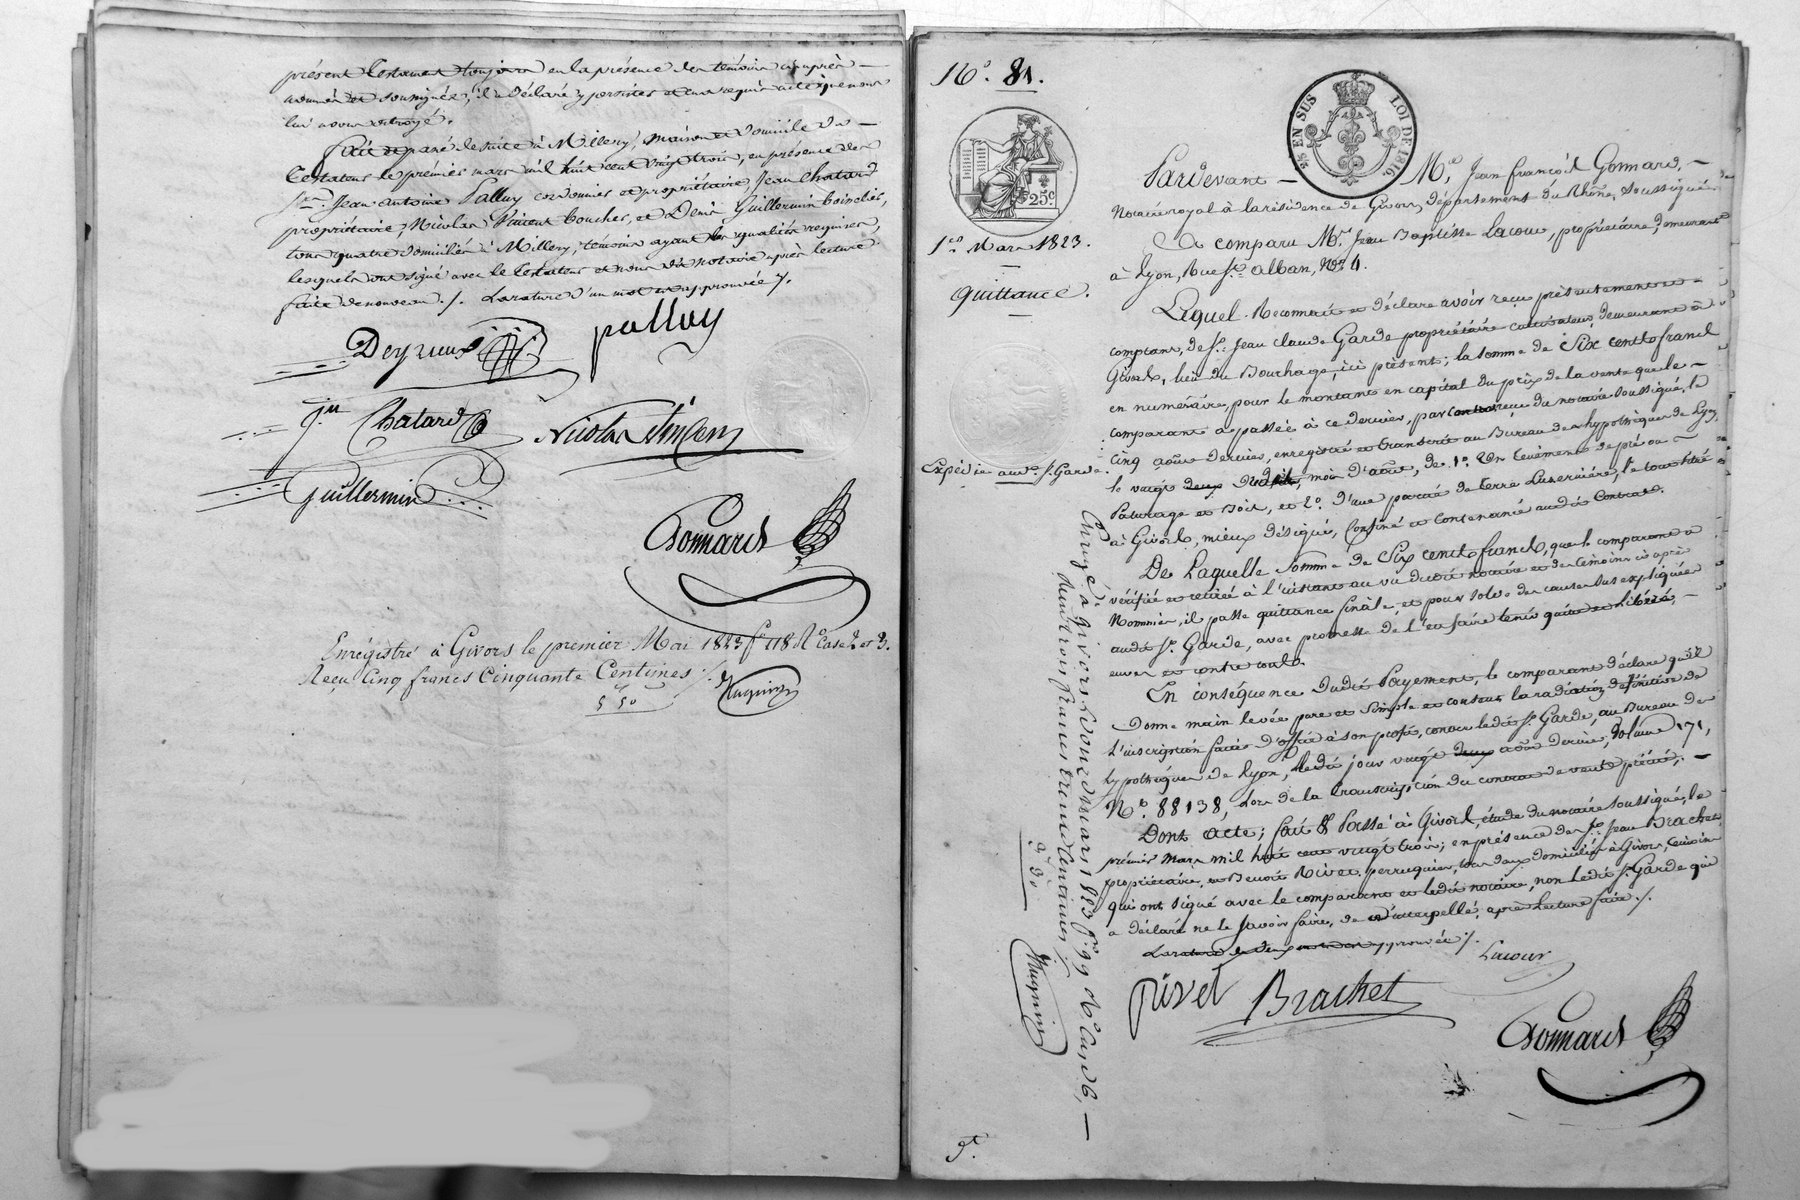 présent testament toujours en la présence des témoins ci après
nommés et soussignés, il a déclaré y persister et nous requis acte que nous
lui avons octroyé.
Fait et passé de suite à Millery, maison et domicile du
testateur le premier mars mil huit cent vingt trois, en présence des
Srs. Jean Antoine Palluy cordonnier et propriétaire, Jean Chatard
propriétaire, Nicolas Vincent boucher, et Denis Guillermin
tous quatre domiciliés à Millery, témoins ayant les qualités requises,
lesquels ont signé avec le testateur et nous dit notaire après lecture
faite de nouveau ./. La rature d'un mot est approuvée ./.
Deyrieux palluy
jn Chatard Nicolas Vincent
Guillermin
Gonnard
Enrégistré à Givors le premier Mai 1823 fo 118 Ro Case 2 et 3.
Reçu Cinq francs Cinquante Centimes ./.
5 50
No. 81.
25 EN SUS LOI DE 1816.
25c
1er Mars 1823.
Quittance.
Expédié aud. Sr. Garde
Pardevant Me. Jean François Gonnard,
Notaire royal à la résidence de Givors, département du Rhône, soussigné
A comparu Mr. Jean Baptiste Lacour, propriétaire, demeurant
à Lyon, Rue St. alban, No. 4.
Lequel Reconnait et déclare avoir reçu présentement et
comptant, de Sr. Jean Claude Garde propriétaire cultivateur, demeurant à
Givors, lieu du Bourchage, ici présent; la somme de Six cents francs
en numéraire, pour le montant en capital du prix de la vente que le
comparant a passée à ce dernier, par contrat reçu du notaire soussigné, le
cinq août dernier, enregistré et transcrit au Bureau des hypothèques de Lyon
le vingt deux dudit, mois d'août, de 1o. Un tènement de pré ou
Paturage et Bois, et 2o. d'une partie de terre Luzernière, le tout situé
à Givors, mieux désigné, Confiné et Contenancé audit Contrat.
De Laquelle Somme de Six cents francs, que le comparant a
vérifiée et retirée à l'instant au vu dudit notaire et des témoins ci après
Nommés, il passe quittance finale, et pour solde des causes sus expliquées
audit Sr. Garde, avec promesse de l'en faire tenir quitte et libéré,
envers et contre tous.
En conséquence dudit Payement, le comparant déclare qu'il
Donne main levée pure et Simple et consent la radiation définitive de
l'inscription faite d'office à son profit, contre ledit Sr. Garde, au Bureau des
hypothèques de Lyon, ledit jour vingt deux août dernier, volume 171,
No. 88138, Lors de la transcription du contrat de vente précité,
Dont acte; fait & Passé à Givors, étude du notaire soussigné, le
premier Mars mil huit cent vingt trois; en présence des Srs. Jean Brachet
propriétaire, et Benoit Rivet, perruquier, tous deux domiciliés à Givors, témoins
qui ont signé avec le comparant et ledit notaire, non ledit Sr. Garde qui
a déclaré ne le savoir faire, de ce interpellé, après Lecture faite ./.
La rature de deux mots est approuvée ./.
Lacour
Rivet Brachet
Gonnard
Enregé à givors le onze mars 1823 fo 99 Ro Case 6,
reçu trois francs trente centimes ./.
3 30